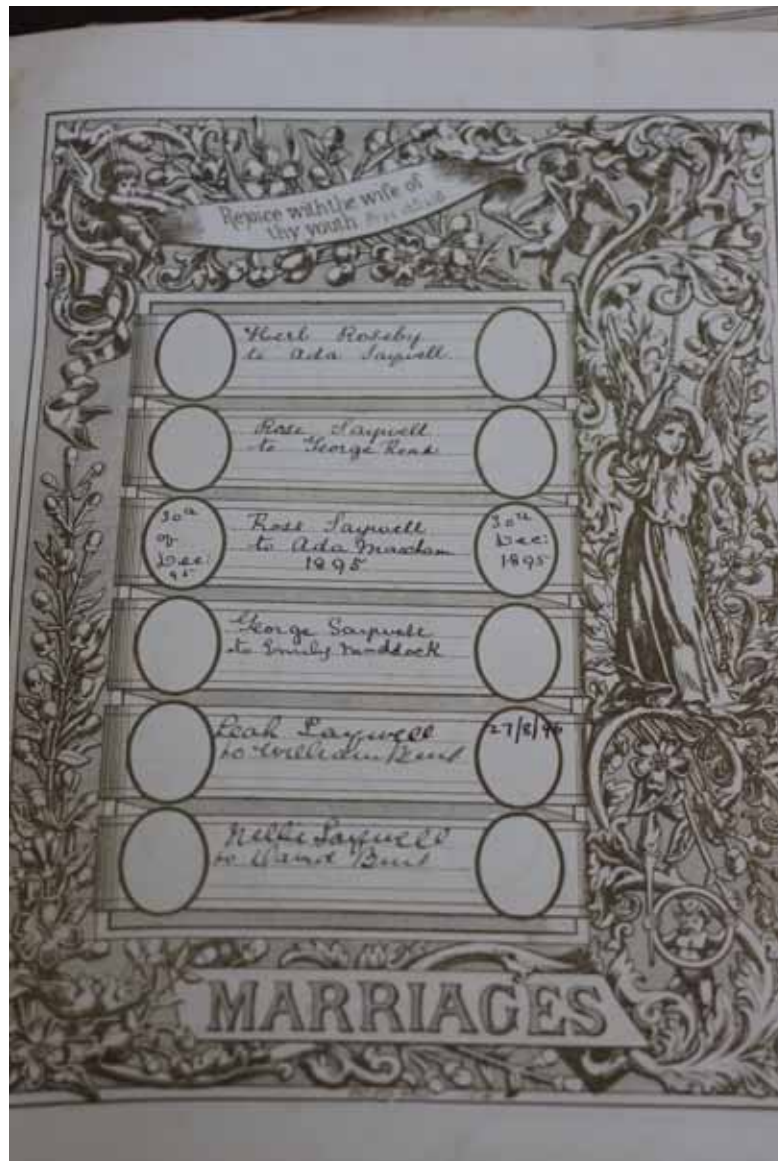 Rejoice with the wife of
thy youth
Herb Roseby
to Ada Saywell
Rose Saywell
to George
30th
of
Dec:
95
Rose Saywell
to Ada Maxham
1895
30th
Dec:
1895
George Saywell
to Emily Maddock
Leah Saywell
to William Bent
27/8/96
Nellie Saywell
to Bent
MARRIAGES